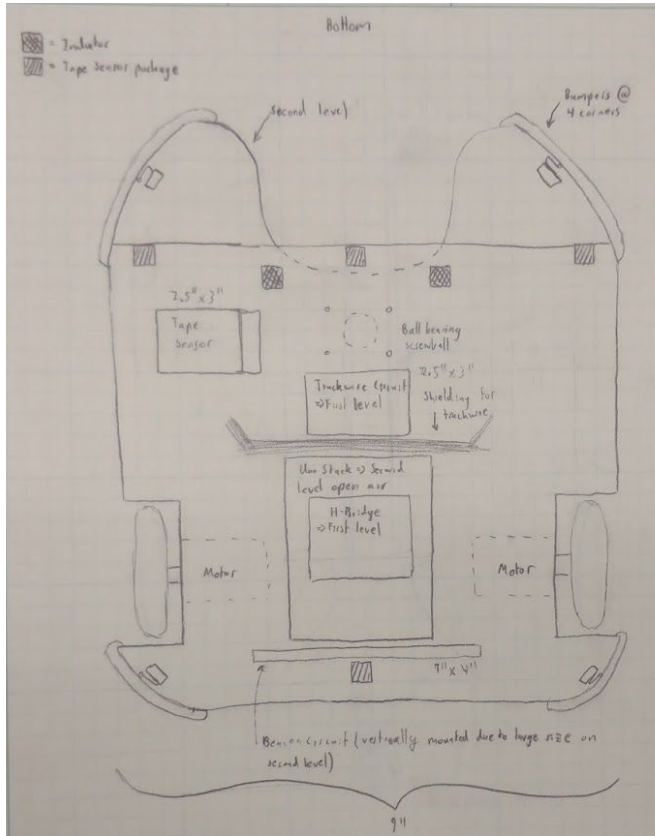 Bottom
= Inductor
= Tape Sensor package
second level
Bumpers @
4 corners
2.5" x 3"
Tape
sensor
Ball bearing
screwball
2.5" x 3"
Trackwire Circuit
⇒ First level
Shielding for
trackwire
Uno Stack ⇒ Second
level open air
H-Bridge
⇒ First level
Motor
Motor
7" x 4"
Beacon Circuit (vertically mounted due to large size on
second level)
9"